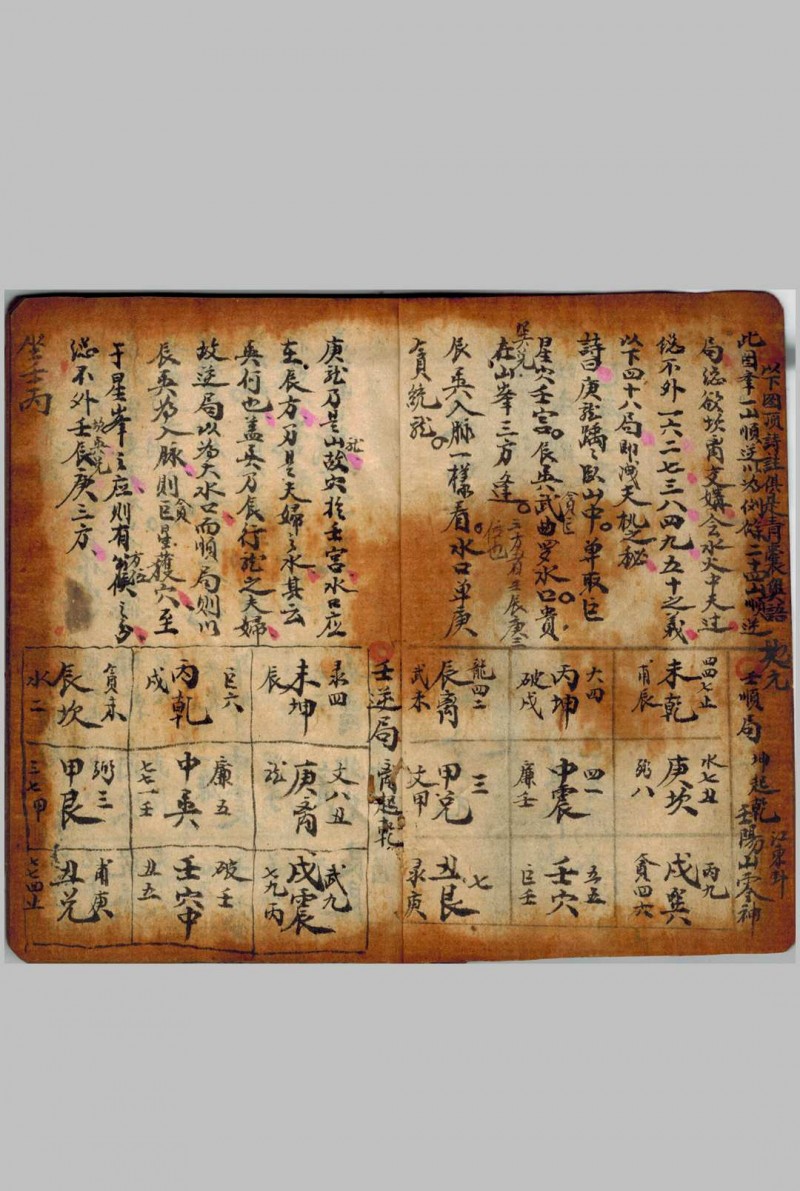 以下图頂詩註俱是青囊奧語
此因率一山順逆以为例餘二十四山順逆
局總欲坎离交媾会水火中天过
總不外一六二七三八四九五十之義
以下四十八局即洩天机之秘
詩曰庚龙踽々臥山中。单取巨
星穴壬宮。辰巽武曲罗水口。貴
在山峯三方逢。
三方
辰庚三
位也
辰巽入脉一樣看水口单庚
貪統龙。
次元
壬順局
坤起乾
壬陽山零神
四四七止
未乾
甫辰
水七丑
庚坎
弼八
丙九
戌巽
貪四六
六四
丙坤
破戌
四一
中震
廉壬
五五
壬穴
巨壬
龍四二
辰离
武未
三
甲兌
文甲
七
丑艮
录庚
壬逆局
离起乾
庚龙乃是山故穴於壬宮水口应
在辰方乃是夫婦之水其云
巽行也蓋巽乃辰行龙之夫婦
故逆局以为天水口而順局则以
辰巽为入脉则巨星護穴至
于星峯主应则有方位
總不外壬辰庚三方
坐壬丙
录四
未坤
辰
文八丑
庚离
龙
武九
戌震
七九丙
巨六
丙乾
戌
廉五
中巽
七七一壬
破壬
壬穴中
丑五
貪未
辰坎
水二
弼三
甲艮
三七甲
甫庚
丑兌
七七四止